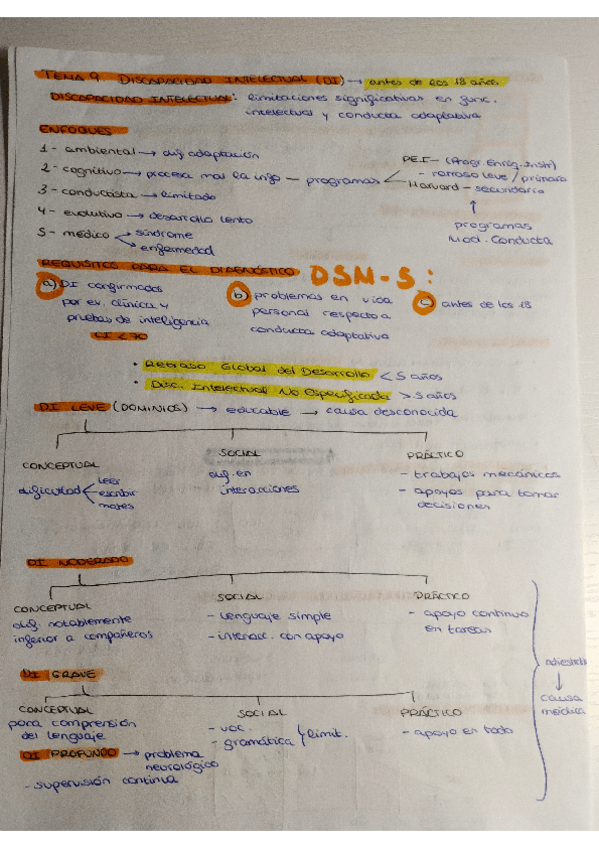 TEMA 9. DISCAPACIDAD INTELECTUAL (DI) → antes de los 18 años.
DISCAPACIDAD INTELECTUAL: limitaciones significativas en func.
intelectual y conducta adaptativa
ENFOQUES
1- ambiental → dif. adaptación
2- cognitivo → procesa mal la info — programas
PEI — (Progr. Enriq. Instr)
- retraso leve / primaria
Harvard — secundaria
↑
programas
Mod. Conducta
3- conductista → limitado
4- evolutivo → desarrollo lento
5- médico → síndrome
→ enfermedad
REQUISITOS PARA EL DIAGNÓSTICO DSM-5:
a) DI confirmados
por ev. clínica y
pruebas de inteligencia
CI < 70
b) problemas en vida
personal respecto a
conducta adaptativa
c) antes de los 18
• Retraso Global del Desarrollo < 5 años
• Disc. Intelectual No Especificada > 5 años
DI LEVE (DOMINIOS) → educable → causa desconocida
CONCEPTUAL
dificultad leer
escribir
mates
SOCIAL
dif. en
interacciones
PRÁCTICO
- trabajos mecánicos
- apoyos para tomar
decisiones
DI MODERADO
CONCEPTUAL
dif. notablemente
inferior a compañeros
SOCIAL
- lenguaje simple
- interacc. con apoyo
PRÁCTICO
- apoyo continuo
en tareas
DI GRAVE
CONCEPTUAL
poca comprensión
del lenguaje
SOCIAL
- voc.
- gramática / limit.
PRÁCTICO
- apoyo en todo
DI PROFUNDO → problema
neurológico
- supervisión continua
↓
causa
médica